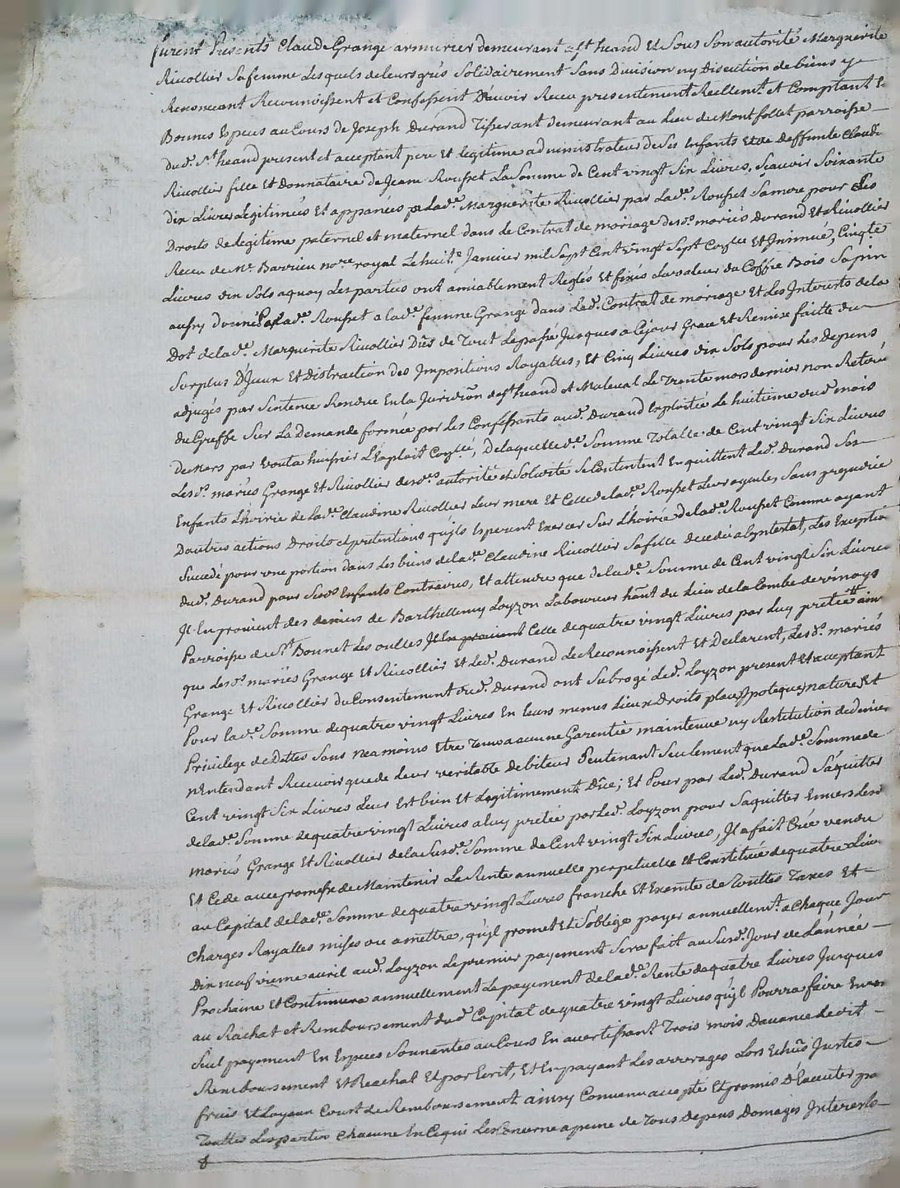 furent Presents Claude Grange armurier demeurant a St heand Et Sous Son autorité Marguerite
Rivollier Sa femme Lesquels de leurs grés Solidairement Sans Division ny Discution de biens y
Renonceant Reconnoissent et Confessent D'avoir Receu presentement Reellemt. et Comptant En
Bonnes Especes au Cours de Joseph Durand Tiserant demeurant au lieu de Montfollet parroisse
dud. St heand present et acceptant pere et legitime administrateur de Ses Enfants Et de deffunte Claude
Rivollier fille Et Donnataire de Jeane Rouset La Somme de Cent vingt Six Livres, Scavoir Soixante
dix Livres Legitimées Et appanées lad. Marguerite Rivollier par Lad. Rouset Sa mere pour Ses
Droits de legitime paternel et maternel dans le Contrat de mariage des. mariés Durand Et Rivollier
Receu de Me. Barrieu nore. royal Le huite. Janvier mil Sept Cent vingt Sept Et Insinué, Cinqte
Livres dix Sols a quoy Les parties ont amiablement Reglés et fixés la valleur du Coffre Bois Sapin
aussy donné Par lad. Rouset a lad. femme Grange dans Led. Contrat de mariage et Les Interests de la
Dot de lad. Marguerite Rivollier Dües de Tout Le passé Jusques a Ce jour Grace Et Remise faitte du
Surplus D'Iceux Et Distraction des Impositions Royalles, Et Cinq Livres dix Sols pour Les Depens
adjugés par Sentence Rendue En la Juridion. de St heand et Malleval Le Trente mars dernier non Retiré
du Greffe Sur La demande formée par Les Confessants aud. Durand Exploitée Le huitieme dud. mois
de Mars par huissier L'Exploit, De laquelle de. Somme Totalle de Cent vingt Six Livres
Les s. mariés Grange Et Rivollier de autorité et Solidité Se Contentent En quittent Led. Durand Ses
Enfants L'hoirie de lad. Claudine Rivollier Leur mere Et Celle de lad. Rouset Leur ayeule, Sans prejudice
D'autres actions Droits et pretentions qu'ils Esperent Exercer Sur L'hoirie de lad. Rouset Comme ayant
Succedé pour une portion dans Les biens de lad. Claudine Rivollier Sa fille Decedée abjntestat, Les Exceptions
dud. Durand pour Sesd. Enfants Contraires, Et attendre que de lad. Somme de Cent vingt Six Livres
Il En provient des deniers de Barthellemy Loyzon Laboureur hant. du Lieu de la Combe de
Parroisse de St Bonnet Les oulles Celle de quatre vingt Livres par Luy pretée ain
que Les s. mariés Grange Et Rivollier Et Led. Durand Le Reconnoissent Et Declarent, Les s. mariés
Grange Et Rivollier du Consentement dud. Durand ont Subrogé Led. Loyzon present Et acceptant
Pour lad. Somme de quatre vingt Livres En Leurs memes Lieux Droits place Ipoteque, nature, Et
Privilege de Dettes Sans neamoins Etre Tenus a aucune Garentie maintenue ny Restitution de deniers
n'Entendant Recevoir que de Leur veritable debiteur Seulement que Lad. Somme de
Cent vingt Six Livres Leur Est bien Et Legitimement Düe; Et Pour par Led. Durand S'aquitter
de lad. Somme de quatre vingt Livres a luy pretée par Led. Loyzon pour S'aquitter Envers Lesd
mariés Grange Et Rivollier de la Susd. Somme de Cent vingt Six Livres, Il a fait Crée vendu
Et Cede avec promesse de Maintenir La Rente annuelle perpetuelle Et Constituée de quatre Liv
au Capital de lad. Somme de quatre vingt Livres franche Et Exemte de Touttes Taxes Et
Charges Royalles mises ou a mettre, qu'il promet Et S'oblige payer annuellemt. a Chaque Jour
Dix neuf vieme avril aud. Loyzon Le premier payement Sera fait au Susd. Jour de L'année
Prochaine Et Continuera annuellement Le payement de lad. Rente de quatre Livres Jusques
au Rachat et Remboursement dud. Capital de quatre vingt Livres qu'il Pourra faire En un
Seul payement En Especes Sonnantes au Cours En avertissant Trois mois D'avance Led
Remboursement Et Reachat Et par Ecrit, Et En payant Les arrerages Lors Echus Justes
frais Et Loyaux Couts de Remboursement ainsy Convenu accepté Et promis D'Executer par
Touttes Les parties Chacune En Ce qui Les Concerne a peine de Tous Depens Domages Interests